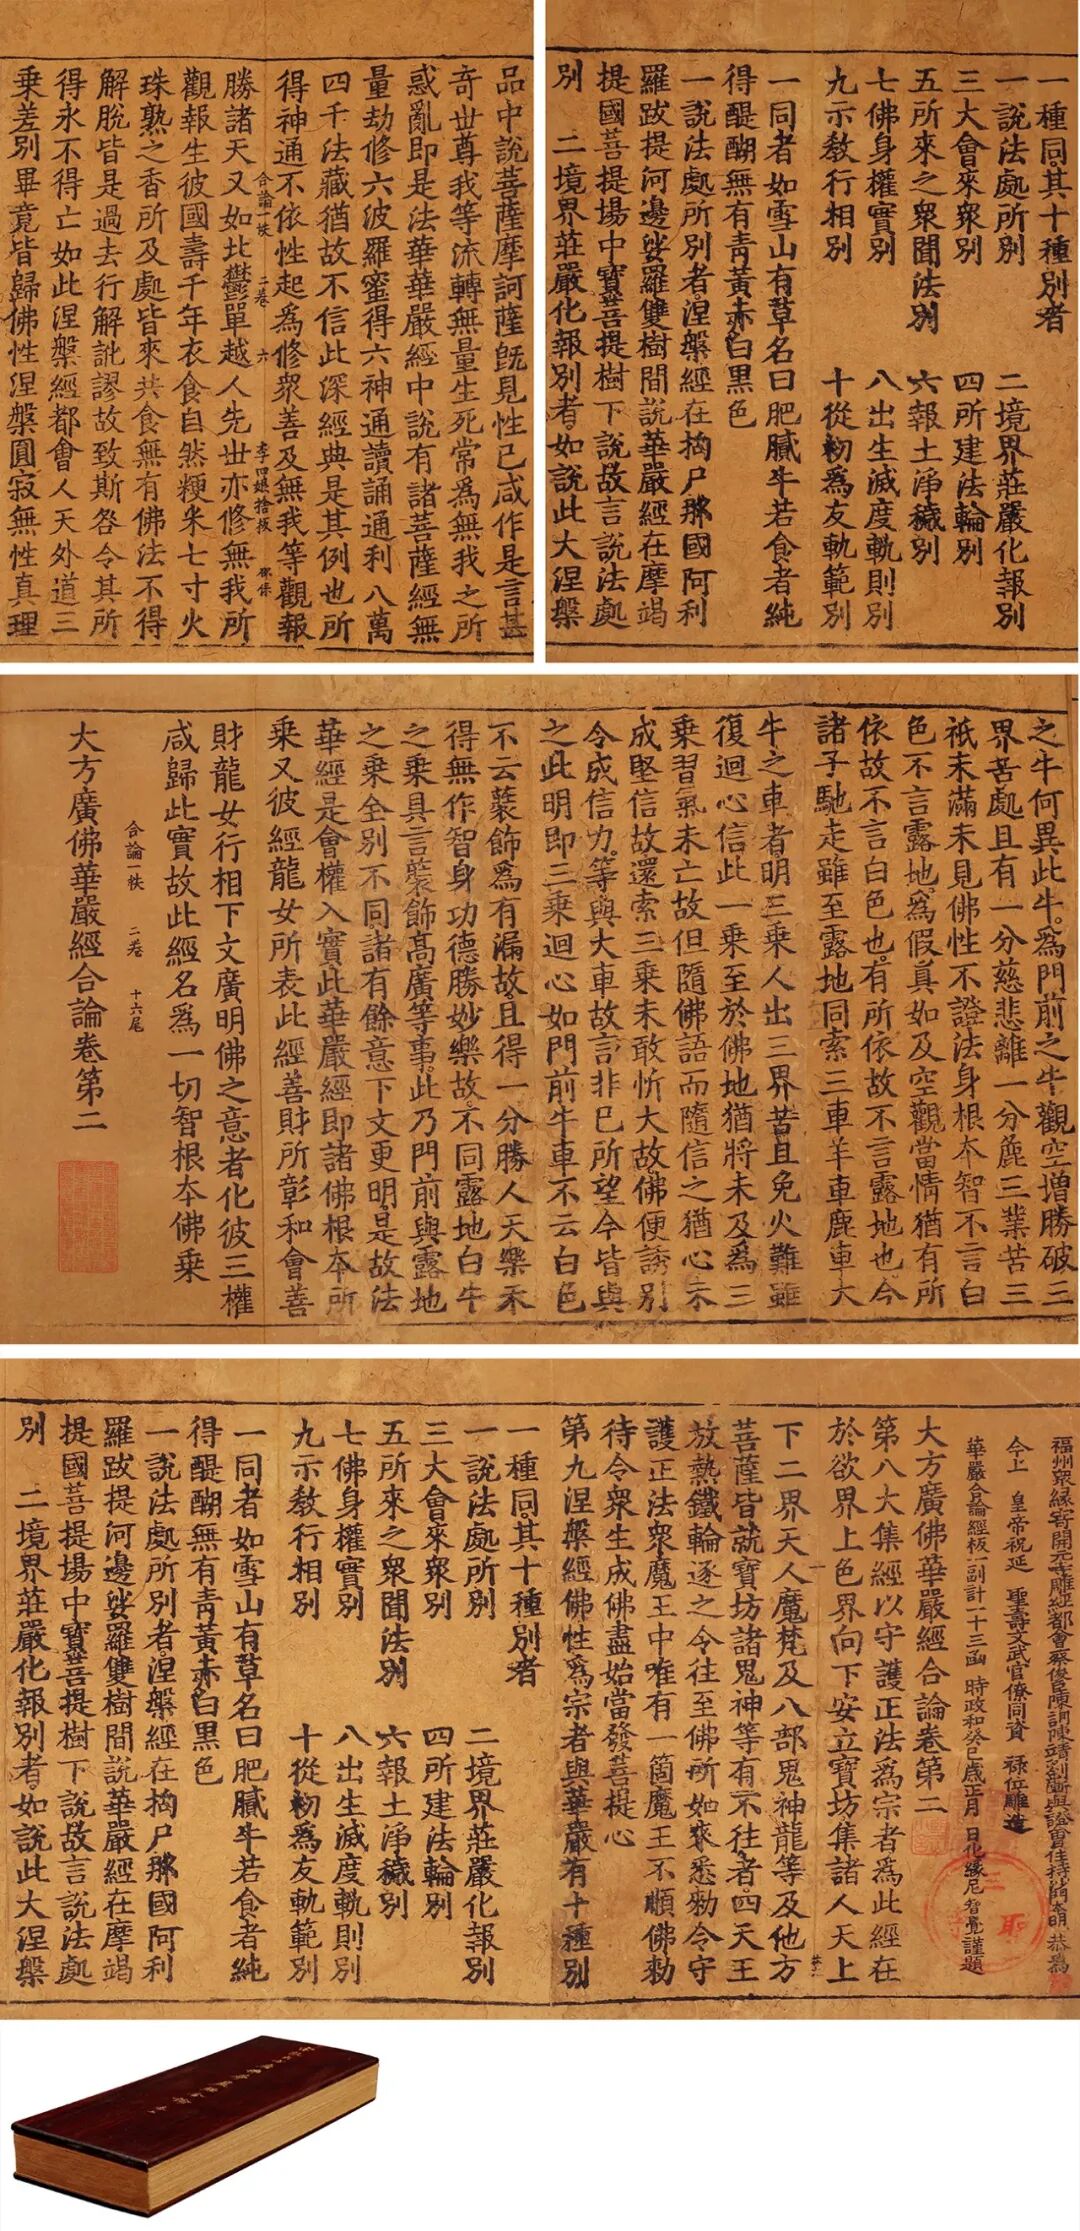 品中說菩薩摩訶薩旣見性已咸作是言甚
奇世尊我等流轉無量生死常爲無我之所
惑亂即是法華華嚴經中說有諸菩薩經無
量劫修六波羅蜜得六神通讀誦通利八萬
四千法藏猶故不信此深經典是其例也所
得神通不依性起爲修衆善及無我等觀報
合論一帙 二卷 六 李四娘捨板
勝諸天又如北鬱單越人先世亦修無我所
觀報生彼國壽千年衣食自然粳米七寸火
珠熟之香所及處皆來共食無有佛法不得
解脫皆是過去行解訛謬故致斯咎令其所
得永不得亡如此涅槃經都會人天外道三
乘差別畢竟皆歸佛性涅槃圓寂無性真理
一種同其十種別者
一說法處所別 二境界莊嚴化報別
三大會來衆別 四所建法輪別
五所來之衆聞法別 六報土淨穢別
七佛身權實別 八出生滅度軌則別
九示教行相別 十從初爲友軌範別
一同者如雪山有草名曰肥膩牛若食者純
得醍醐無有青黃赤白黑色
一說法處所別者涅槃經在拘尸那國阿利
羅跋提河邊娑羅雙樹間說華嚴經在摩竭
提國菩提場中寶菩提樹下說故言說法處
別 二境界莊嚴化報別者如說此大涅槃
之牛何異此牛爲門前之牛觀空增勝破三
界苦處且有一分慈悲離一分麁三業苦三
祇未滿未見佛性不證法身根本智不言白
色不言露地爲假真如及空觀當情猶有所
依故不言白色也有所依故不言露地也今
諸子馳走雖至露地同索三車羊車鹿車大
牛之車者明三乘人出三界苦且免火難雖
復迴心信此一乘至於佛地猶將未及爲三
乘習氣未亡故但隨佛語而隨信之猶心未
成堅信故還索三乘未敢忻大故佛便誘別
令成信力等與大車故言非已所望今皆與
之此明即三乘迴心如門前牛車不云白色
不云裝飾爲有漏故且得一分勝人天樂未
得無作智身功德勝妙樂故不同露地白牛
之乘具言裝飾高廣等事此乃門前與露地
之乘全別不同諸有餘意下文更明是故法
華經是會權入實此華嚴經即諸佛根本所
乘又彼經龍女所表此經善財所彰和會善
財龍女行相下文廣明佛之意者化彼三權
咸歸此實故此經名爲一切智根本佛乘
合論一帙 二卷 十六尾
大方廣佛華嚴經合論卷第二
福州衆緣寄開元寺雕經都會蔡俊臣陳詢陳靖劉漸與證會住持沙門本明恭爲
今上 皇帝祝延 聖壽文武官僚同資 祿位雕造
華嚴合論經板一副計一十三函 時政和癸巳歲正月 日化緣尼智覺謹題
大方廣佛華嚴經合論卷第二
第八大集經以守護正法爲宗者爲此經在
於欲界上色界向下安立寶坊集諸人天上
下二界天人魔梵及八部鬼神龍等及他方
菩薩皆就寶坊諸鬼神等有不往者四天王
放熱鐵輪逐之令往至佛所如來悉勑令守
護正法衆魔王中唯有一箇魔王不順佛勑
待令衆生成佛盡始當發菩提心
第九涅槃經佛性爲宗者與華嚴有十種別
一種同其十種別者
一說法處所別 二境界莊嚴化報別
三大會來衆別 四所建法輪別
五所來之衆聞法別 六報土淨穢別
七佛身權實別 八出生滅度軌則別
九示教行相別 十從初爲友軌範別
一同者如雪山有草名曰肥膩牛若食者純
得醍醐無有青黃赤白黑色
一說法處所別者涅槃經在拘尸那國阿利
羅跋提河邊娑羅雙樹間說華嚴經在摩竭
提國菩提場中寶菩提樹下說故言說法處
別 二境界莊嚴化報別者如說此大涅槃